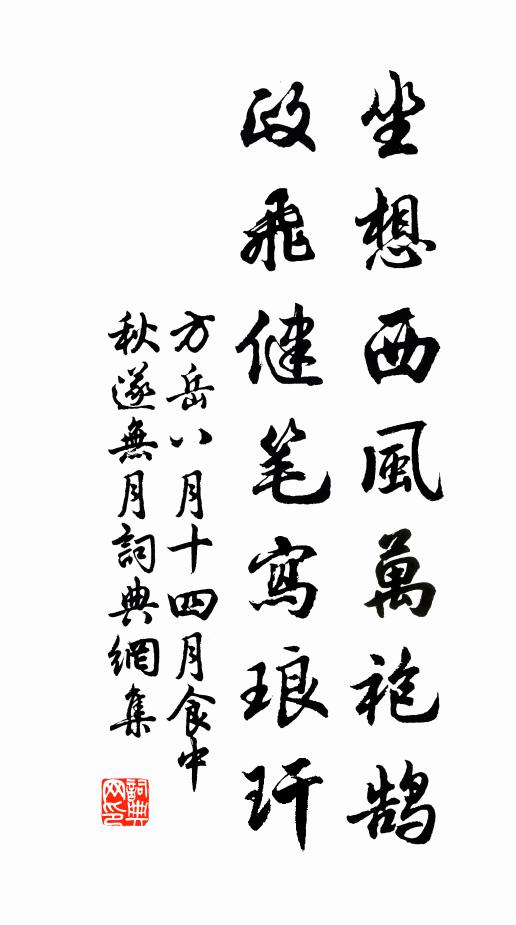 坐想西風萬袍鹄
政飛健笔寫琅玕
方岳八月十四月食中
秋遂無月詞典網集
詞典網印